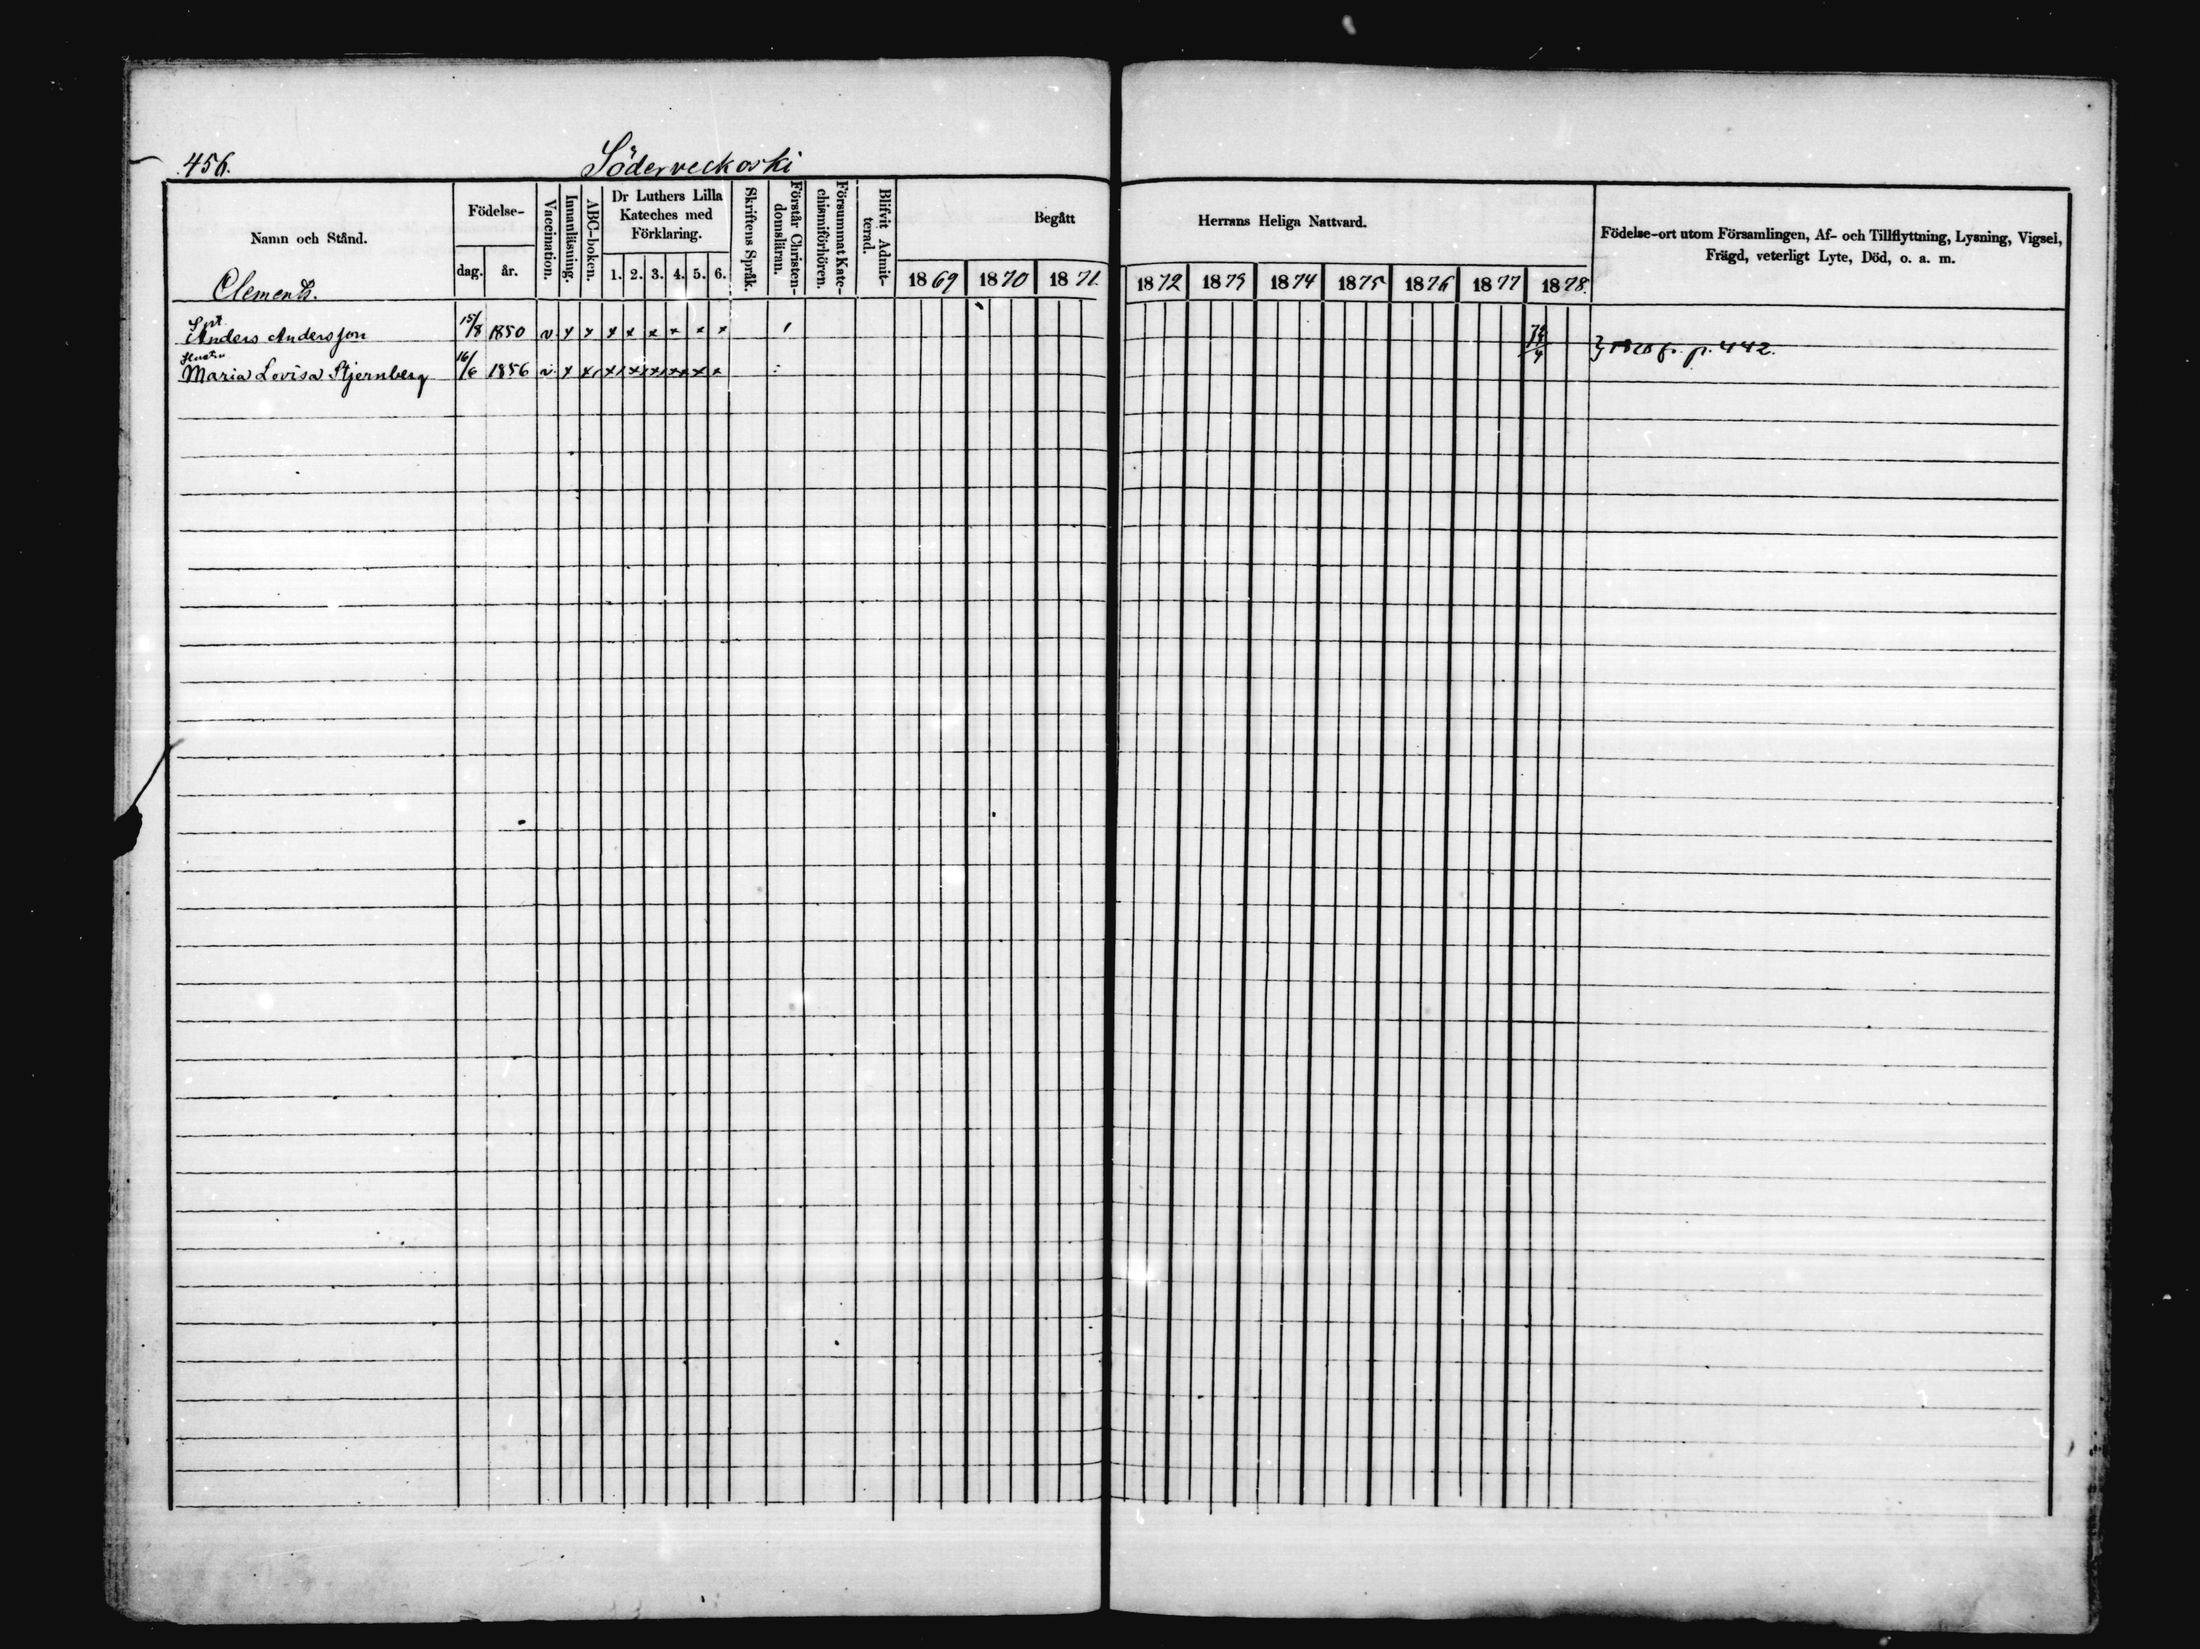 456.
Söderveckoski
Namn och Stånd.
Födelse-
dag. år.
Vaccination.
Innanläsning.
ABC-boken.
Dr Luthers Lilla
Kateches med
Förklaring.
1. 2. 3. 4. 5. 6.
Skriftens Språk.
Förstår Christen-
domsläran.
Försummat Kate-
chismiförhören.
Blifvit Admit-
terad.
Begått
Herrans Heliga Nattvard.
1869 1870 1871.
1872 1873 1874 1875 1876 1877 1878.
Födelse-ort utom Församlingen, Af- och Tillflyttning, Lysning, Vigsel,
Frägd, veterligt Lyte, Död, o. a. m.
Clements.
Anders Andersson 15/8 1850 v x x x x x x x x
Hustru
Maria Lovisa Stjernberg 16/6 1856 v x x x x x x x x
fr. p. 442.